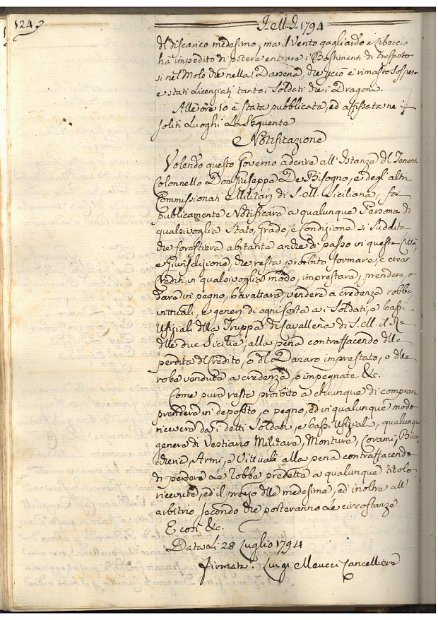 124
Dell' A. 1794
di discarico medesimo, ma il Vento gagliardo e Siboccio
ha impedito di potere entrare i Bastimenti di Trasporto
si nel Molo che nella Darsena, di che ciò è rimasto sospeso
e stati licenziati tanto i Soldati che i Dragoni.
Alle ore 10 è stata pubblicata, ed affissata ne
soliti Luoghi La Seguente
Notificazione
Volendo questo Governo aderire all' Istanza del Tenente
Colonnello Don Giuseppe De Bisogno, e degl' altri
Commissionati Militari di S. M. Siciliana, fa
pubblicamente Notificare a qualunque Persona di
qualsivoglia Stato, grado e condizione si Suddita
che forestiera abitante anche di passo in questa Città
e Giurisdizione, che resta proibito formare, e crear
crediti in qualsivoglia modo, imprestare, prendere, o
dare in pegno, barattare, vendere a credenza robbe
vittuali, e generi di ogni sorta a i Soldati, e bassi
Ufiziali della Truppa di Cavalleria di S. M. il Re
delle due Sicilie alla pena contrafacendo della
perdita del credito, o del Danaro imprestato, o delle
robe vendute a credenza, o impegnate &c.
Come pure resta proibito a chiunque di comprare
prendere in deposito, o pegno, ed in qualunque modo
ricevere da i detti Soldati, e bassi Ufiziali, qualunque
genere di Vestiario Militare, Montura, Corami,
Armi, e Vittuali alla pena contrafacendo
di perdere Le Robbe predette a qualunque titolo
ricevute, ed il prezzo delle medesime, ed inoltre all'
arbitrio secondo che porteranno Le circostanze
E così &c.
Data li 28 Luglio 1794
firmata: Luigi Meucci Cancelliere